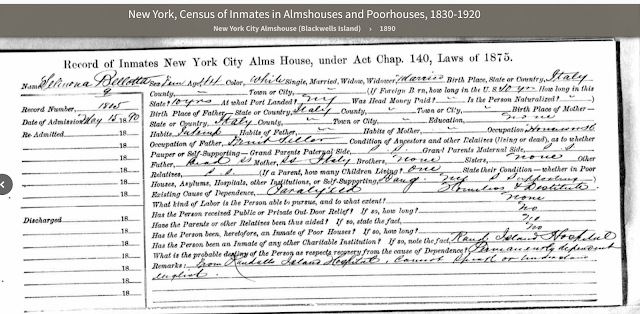 New York, Census of Inmates in Almshouses and Poorhouses, 1830-1920
New York City Almshouse (Blackwells Island) › 1890
Record of Inmates New York City Alms House, under Act Chap. 140, Laws of 1875.
Name Bellotta Sex Fem Age Color, White Single, Married, Widow, Widower, Married Birth Place, State or Country, Italy
County, " Town or City, " (If Foreign Born, how long in the U. S. 10 yrs How long in this
Record Number, 1845 State? 10 yrs At what Port Landed? NY Was Head Money Paid? " Is the Person Naturalized? "
Date of Admission May 1890 Birth Place of Father—State or Country, Italy County, " Town or City, " Birth Place of Mother—
State or Country, Italy County, " Town or City, " Education, none
Re-Admitted 18 Habits Habits of Father, " Habits of Mother, " Occupation
18 Occupation of Father, Fruit Seller Condition of Ancestors and other Relatives (living or dead), as to whether
18 Pauper or Self-Supporting—Grand Parents Paternal Side, Grand Parents Maternal Side,
18 Father, Dead Mother, Italy Brothers, none Sisters, none Other
18 Relatives, (If a Parent, how many Children Living? one State their Condition—whether in Poor
18 Houses, Asylums, Hospitals, other Institutions, or Self-Supporting, NY
18 Existing Cause of Dependence, Paralyzed Homeless & Destitute
18 What kind of Labor is the Person able to pursue, and to what extent? none
Discharged 18 Has the Person received Public or Private Out-Door Relief? If so, how long? No
18 Have the Parents or other Relatives been thus aided? If so, state the fact, No
18 Has the Person been, heretofore, an Inmate of Poor Houses? If so, how long? No
18 Has the Person been an Inmate of any other Charitable Institution? If so, note the fact, Rand. Island Hospital
18 What is the probable destiny of the Person as respects recovery from the cause of Dependence? Permanently dependent
18 Remarks: From Randalls Island Hospital, Cannot speak or understand
18 English